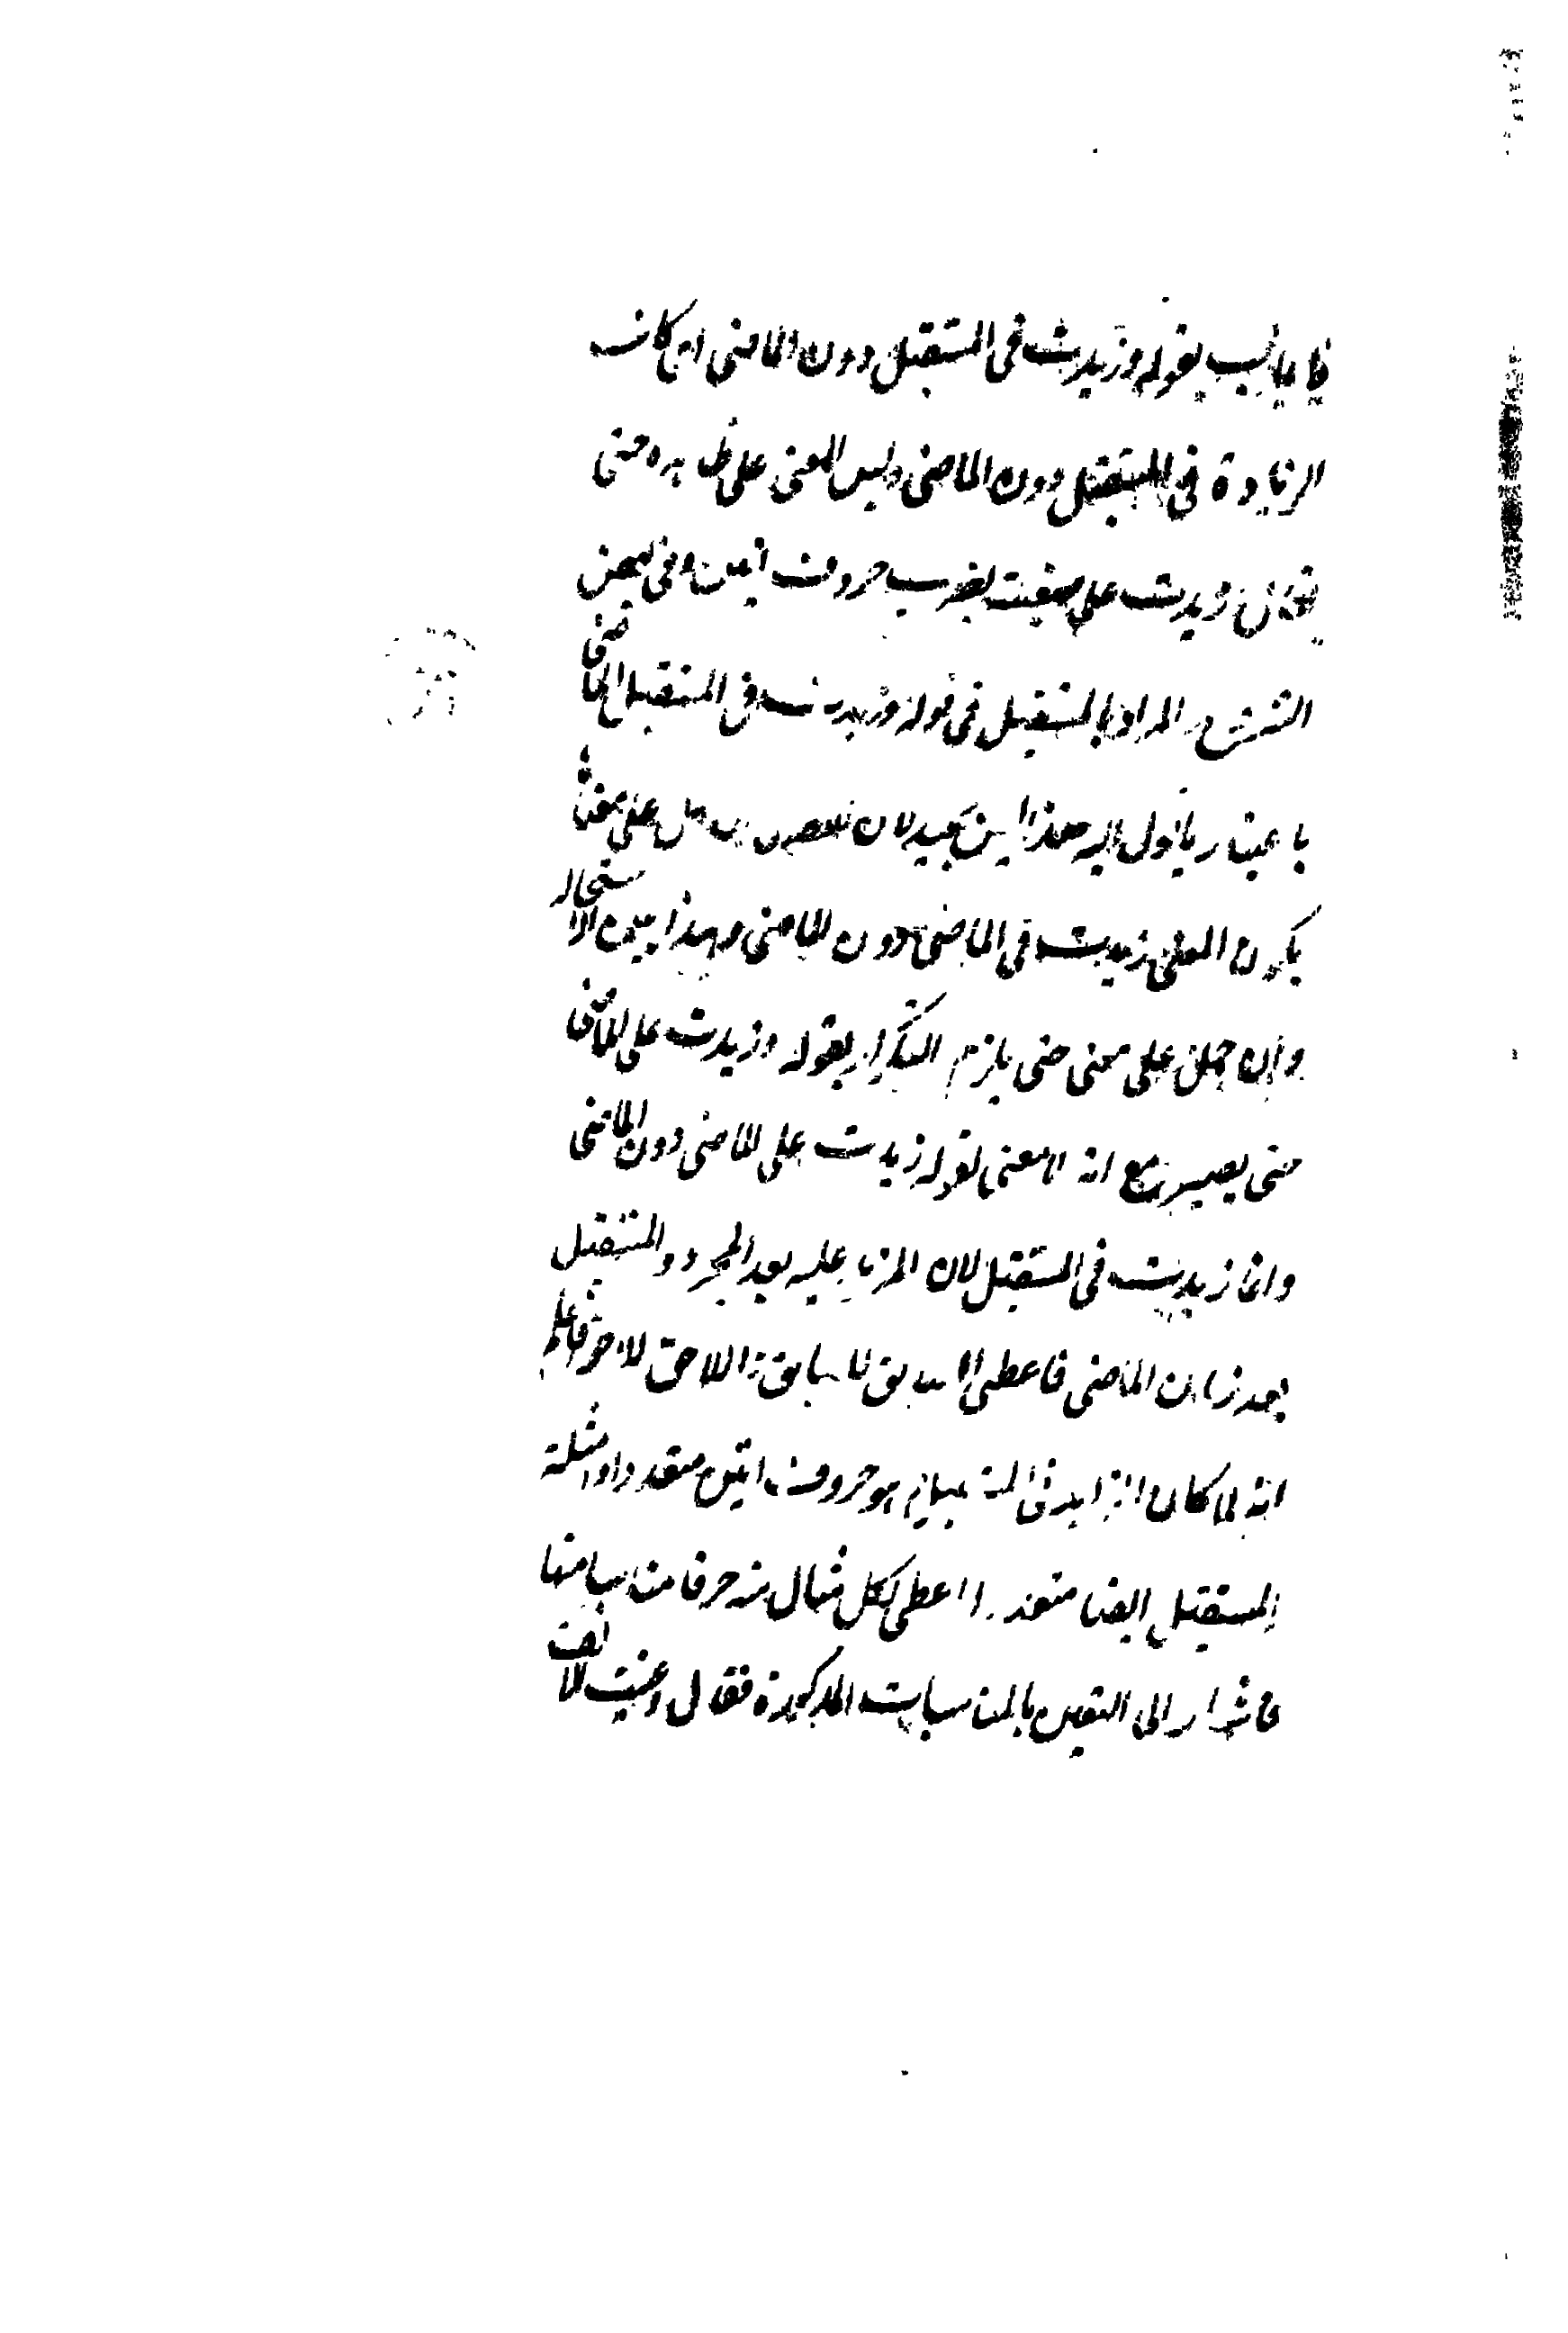 بقوله وزيدت في المستقبل دون الماضى اى كانت
الزيادة في المستقبل دون الماضى وليس المعنى على ظاهره حتى
زيدت على صيغت يضرب حروف اتين وفى بعض
الشروح المراد بالمستقبل في قوله وزيدت في المستقبل الماضى
باعتبار ما يؤل اليه هذا بعيد لان على معنى
يكون المعنى زيدت في الماضى دون الماضى وهذا الاستحاله
وان حمل على معنى حتى يلزم التكرار بقوله وزيدت على الماضى
حتى يصير مع انه لا معنى لقوله زيدت على الماضى دون الماضى
وانما زيدت في المستقبل لان المزيد عليه بعد المجرد والمستقبل
بعد زمان الماضى فاعطى السابق للسابق واللاحق للاحق فاعلم
انه لما كان الزايد هو حروف اتين متعددا وامثلة
المستقبل ايضا متعددا اعطى لكل مثال منه حرفا مناسبا منها
فاشار الى التعين بالمناسبات المذكورة فقال وعينت الالف